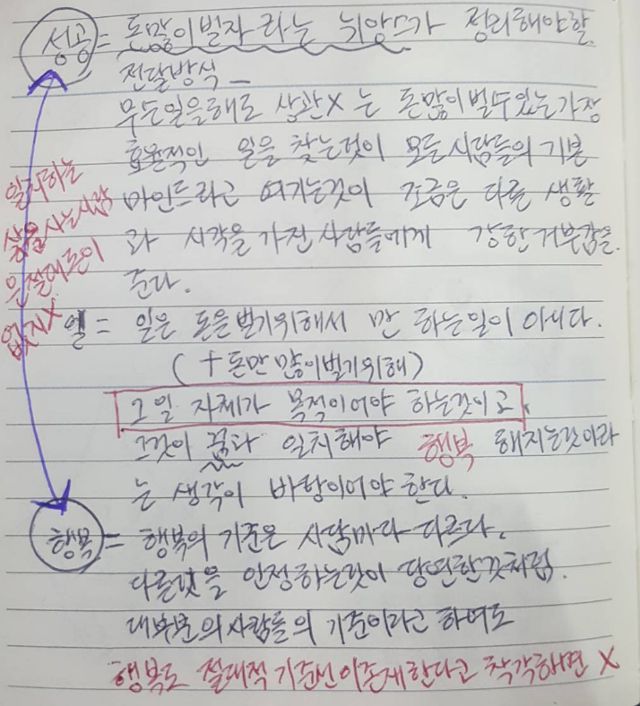 성공 = 돈많이벌자 라는 뉘앙스가 정리해야할
전달방식
무슨일을해도 상관X 는 돈많이벌수있는가장
효율적인 일을 찾는것이 모든사람들의 기본
마인드라고 여기는것이 조금은 다른 생활
과 시각을 가진 사람들에게 강한거부감을
준다.
일치하는
삶을 사는사람
은 절대로이
없지X
일 = 일은 돈을벌기위해서 만 하는일이 아니다.
(+돈만 많이벌기위해)
그일 자체가 목적이어야 하는것이고,
그것이 꿈과 일치해야 행복 해지는것이라
는 생각이 바탕이어야 한다.
행복 = 행복의 기준은 사람마다 다르다.
다른것을 인정하는것이 당연한것처럼.
대부분의사람들의 기준이라고 하여도
행복도 절대적 기준선이존재한다고 착각하면 X